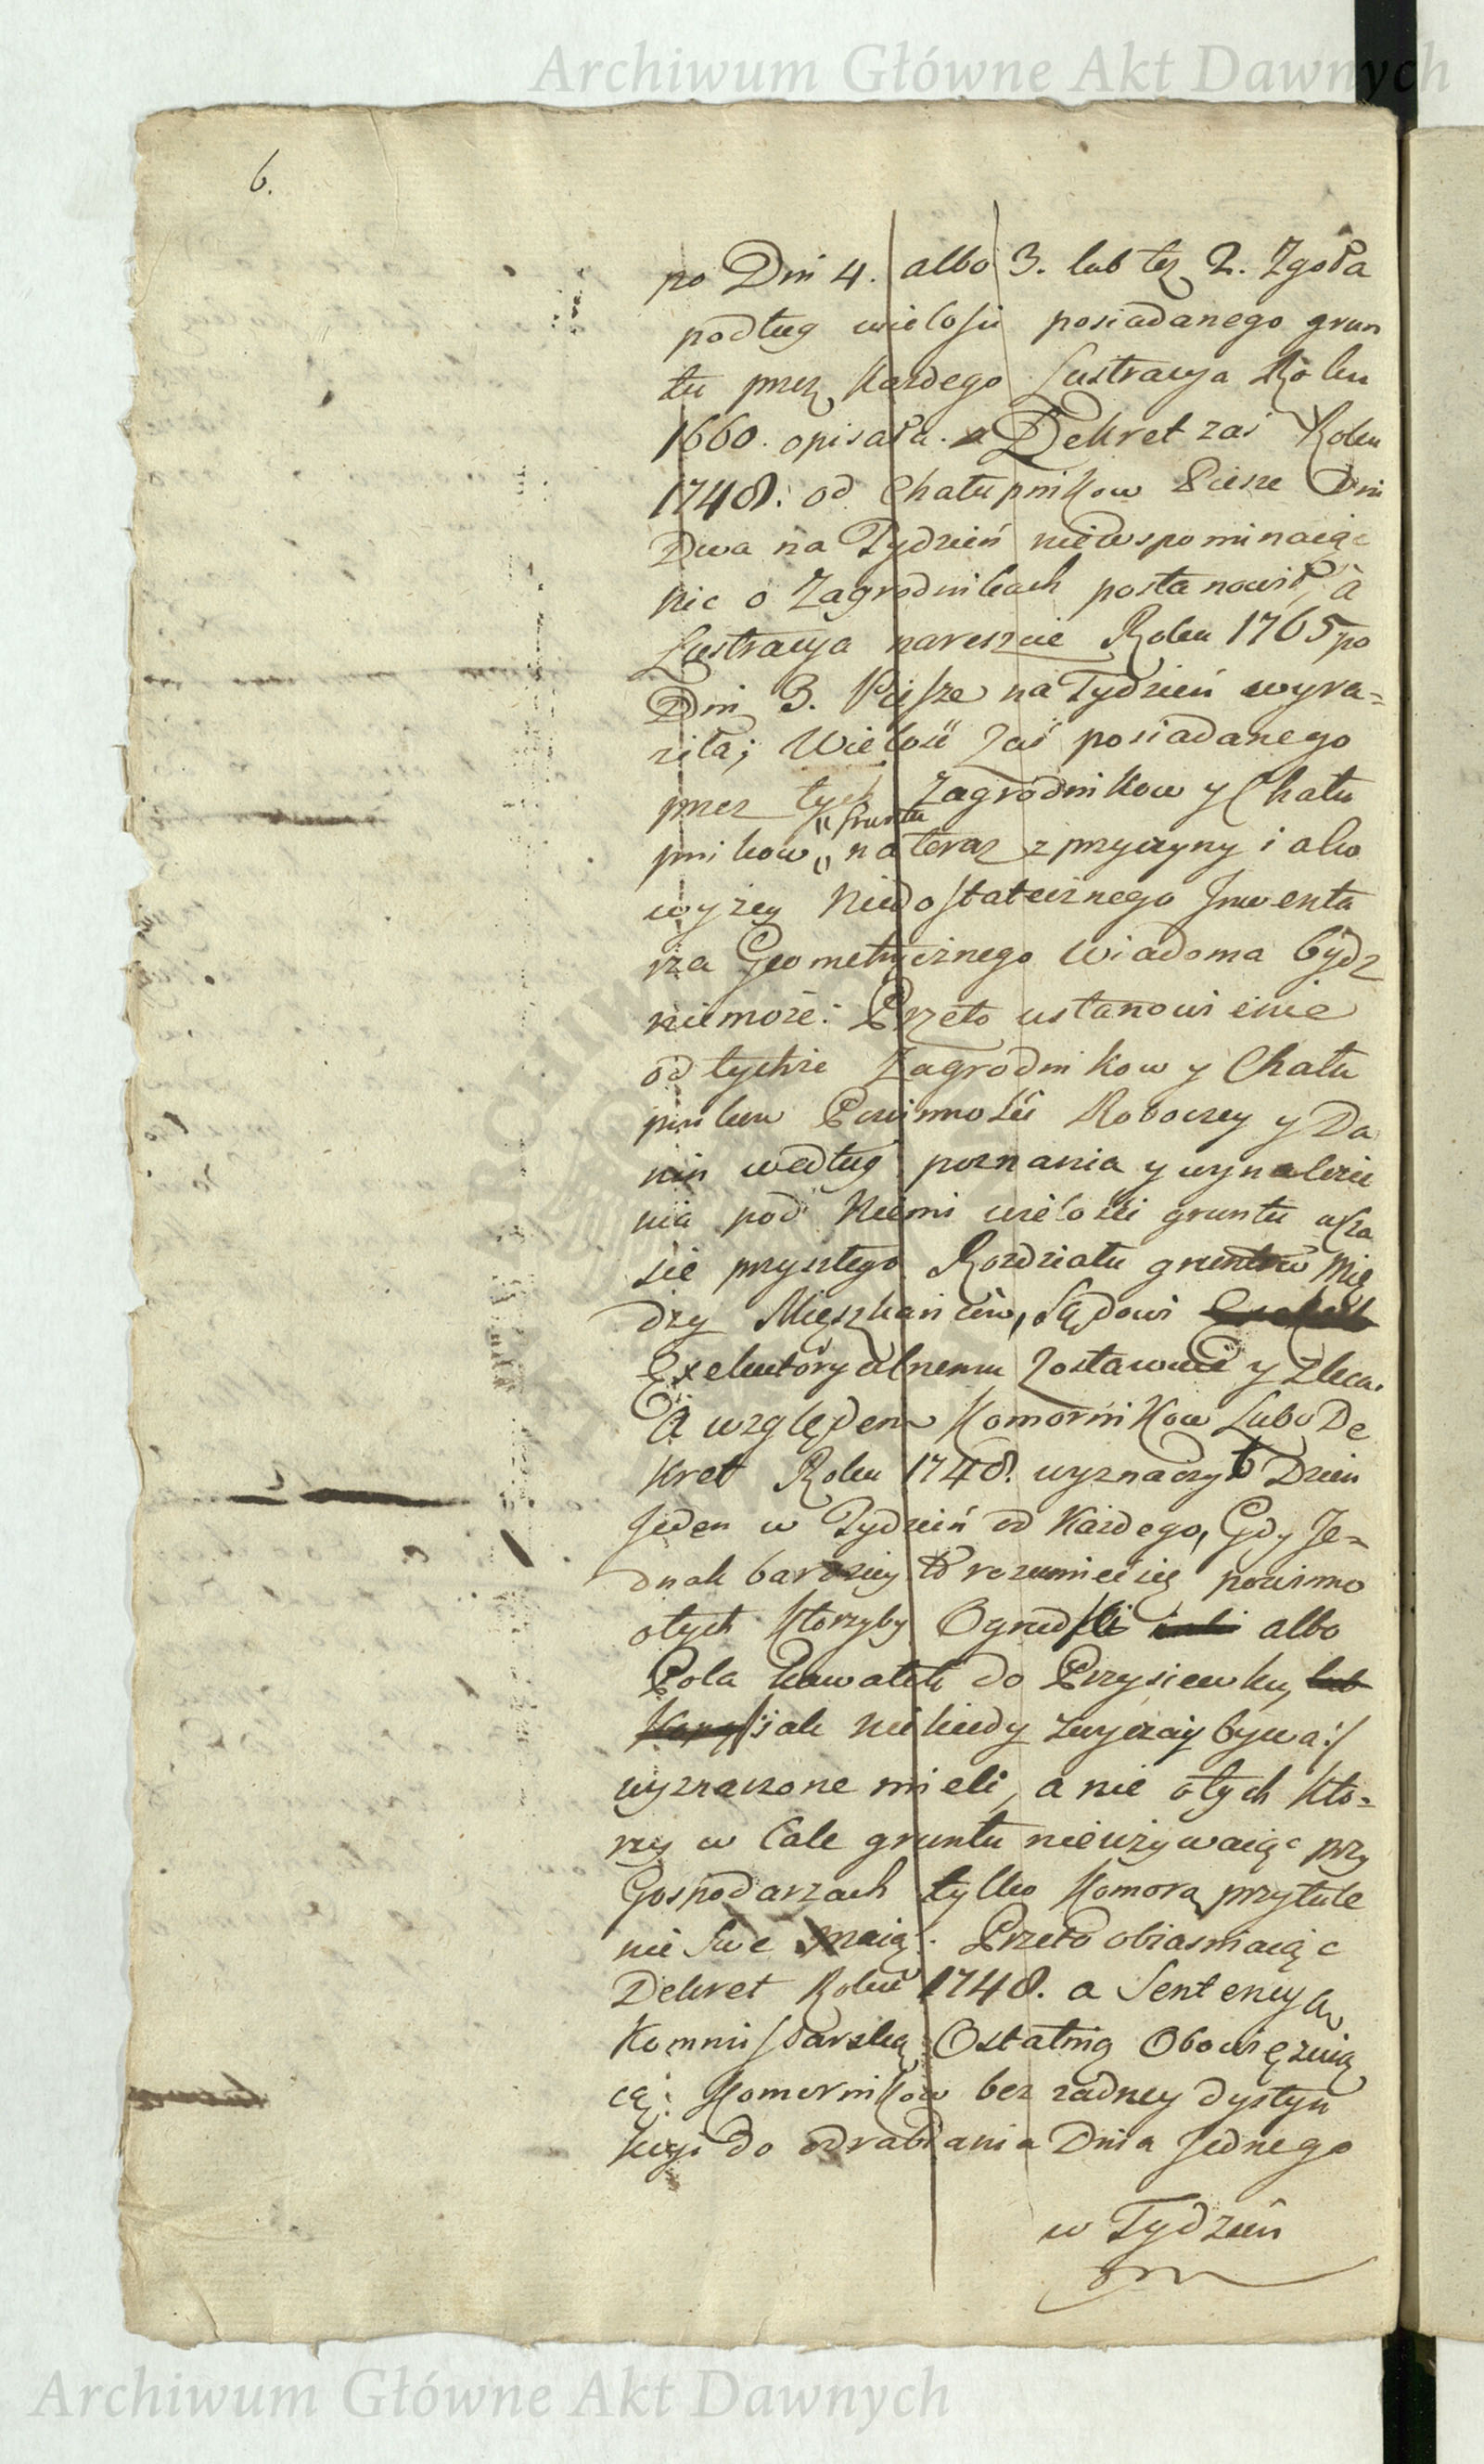 Archiwum Główne Akt Dawnych
6.
po Dni 4. albo 3. lub też 2. Zgoła
podług wielości posiadanego grun
tu przez każdego Lustracya Roku
1660. opisała. a Dekret zaś Roku
1748. od Chałupnikow Piesze Dni
Dwa na Tydzień niewspominaiąc
nic o Zagrodnikach postanowił, a
Lustracya nareszcie Roku 1765 po
Dni 3. Piesze na Tydzień wyra=
ziła; Wielość zaś posiadanego
przez tych Zagrodnikow y Chału
pnikow gruntu na teraz z przyczyny iako
wyżey Niedostatecznego Inwenta
rza Geometrycznego wiadoma bydz
niemoże: Przeto ustanowienie
od tychże Zagrodnikow y Chału
pnikow Powinności Roboczey y Da
nin według poznania y wynalezie
nia pod Niemi wielości gruntu w cza
sie przyszłego Rozdziału gruntow Mię
dzy Mieszkańcow, Sądowi
Exekutoryalnemu zostawuie y zleca.
A względem Komornikow Lubo De
kret Roku 1748. wyznaczył Dzień
Jeden w Tydzień od Każdego, Gdy Je=
dnak bardziey to rozumieć się powinno
o tych Ktorzyby Ogrodki albo
Pola kawałek do Przysiewku, lub
iak niekiedy zwyczay bywa:/
wyznaczone mieli, a nie o tych Kto=
rzy w Cale gruntu nieużywaiąc przy
Gospodarzach tylko Komorą przytule
nie swe maią. Przeto obiasniaiąc
Dekret Roku 1748. a Sentencyą
Kommissarską Ostatnią Obowięzuią
cą: Komornikow bez żadney dystyn
kcyi do odrabiania Dnia Jednego
w Tydzień
Archiwum Główne Akt Dawnych